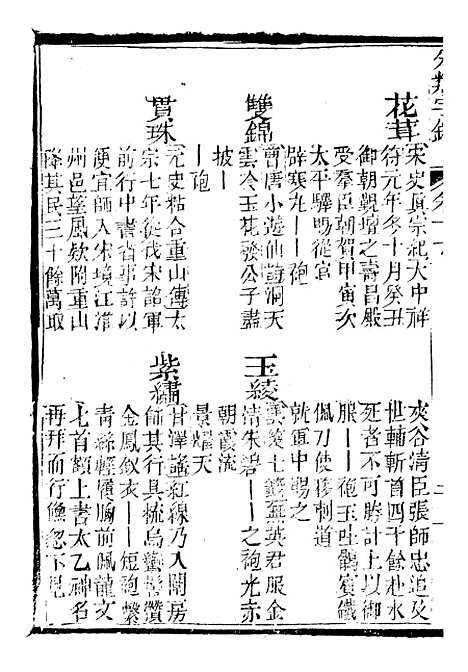 花茸
宋史真宗紀大中祥
符元年冬十月癸丑
御朝覲壇之壽昌殿
受羣臣朝賀甲寅次
太平驛賜從官
辟寒丸——袍
雙錦
曹唐小遊仙詩洞天
雲冷玉花發公子盡
披——袍
貫珠
元史粘合重山傳太
宗七年從伐宋詔軍
前行中書省事許以
便宜師入宋境江淮
州邑望風欵附重山
降其民三十餘萬取
夾谷清臣張師忠追及
世輔斬首四千餘赴水
死者不可勝計上以御
服——袍玉吐鶻賓鐵
佩刀使移剌道
就軍中賜之
玉綾
雲笈七籤無英君服金
精朱碧——之袍光赤
朝霞流
景耀天
紫繡
甘澤謠紅線乃入閨房
飭其行具梳烏蠻髻攢
金鳳釵衣——短袍繫
青絲輕履胸前佩龍文
匕首額上書太乙神名
再拜而行倏忽不見